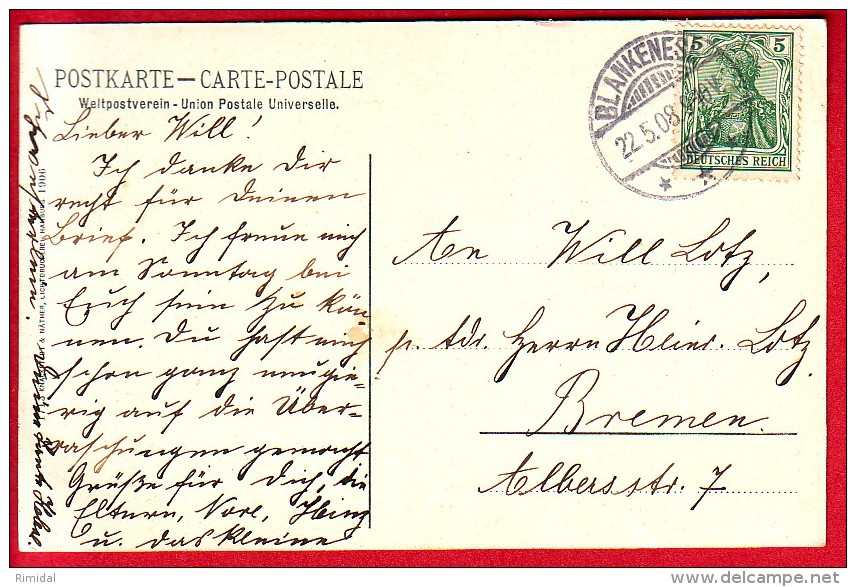 POSTKARTE — CARTE-POSTALE
Weltpostverein - Union Postale Universelle.
BLANKENESE
22.5.08
5 5
DEUTSCHES REICH
Lieber Will!
Ich danke Dir
recht für Deinen
Brief. Ich freue mich
am Sonntag bei
Euch sein zu kön-
nen. Du hast mich
schon ganz neugie-
rig auf die Über-
raschungen gemacht
Grüße für Dich, die
Eltern, Nore,
u. das kleine
An Will Lotz,
p. adr. Herrn Heinr. Lotz
Bremen.
Albersstr. 7
& NÄTHER, LICHTDRUCKEREI, HAMBURG 1906
Rimidal
delcampe.net